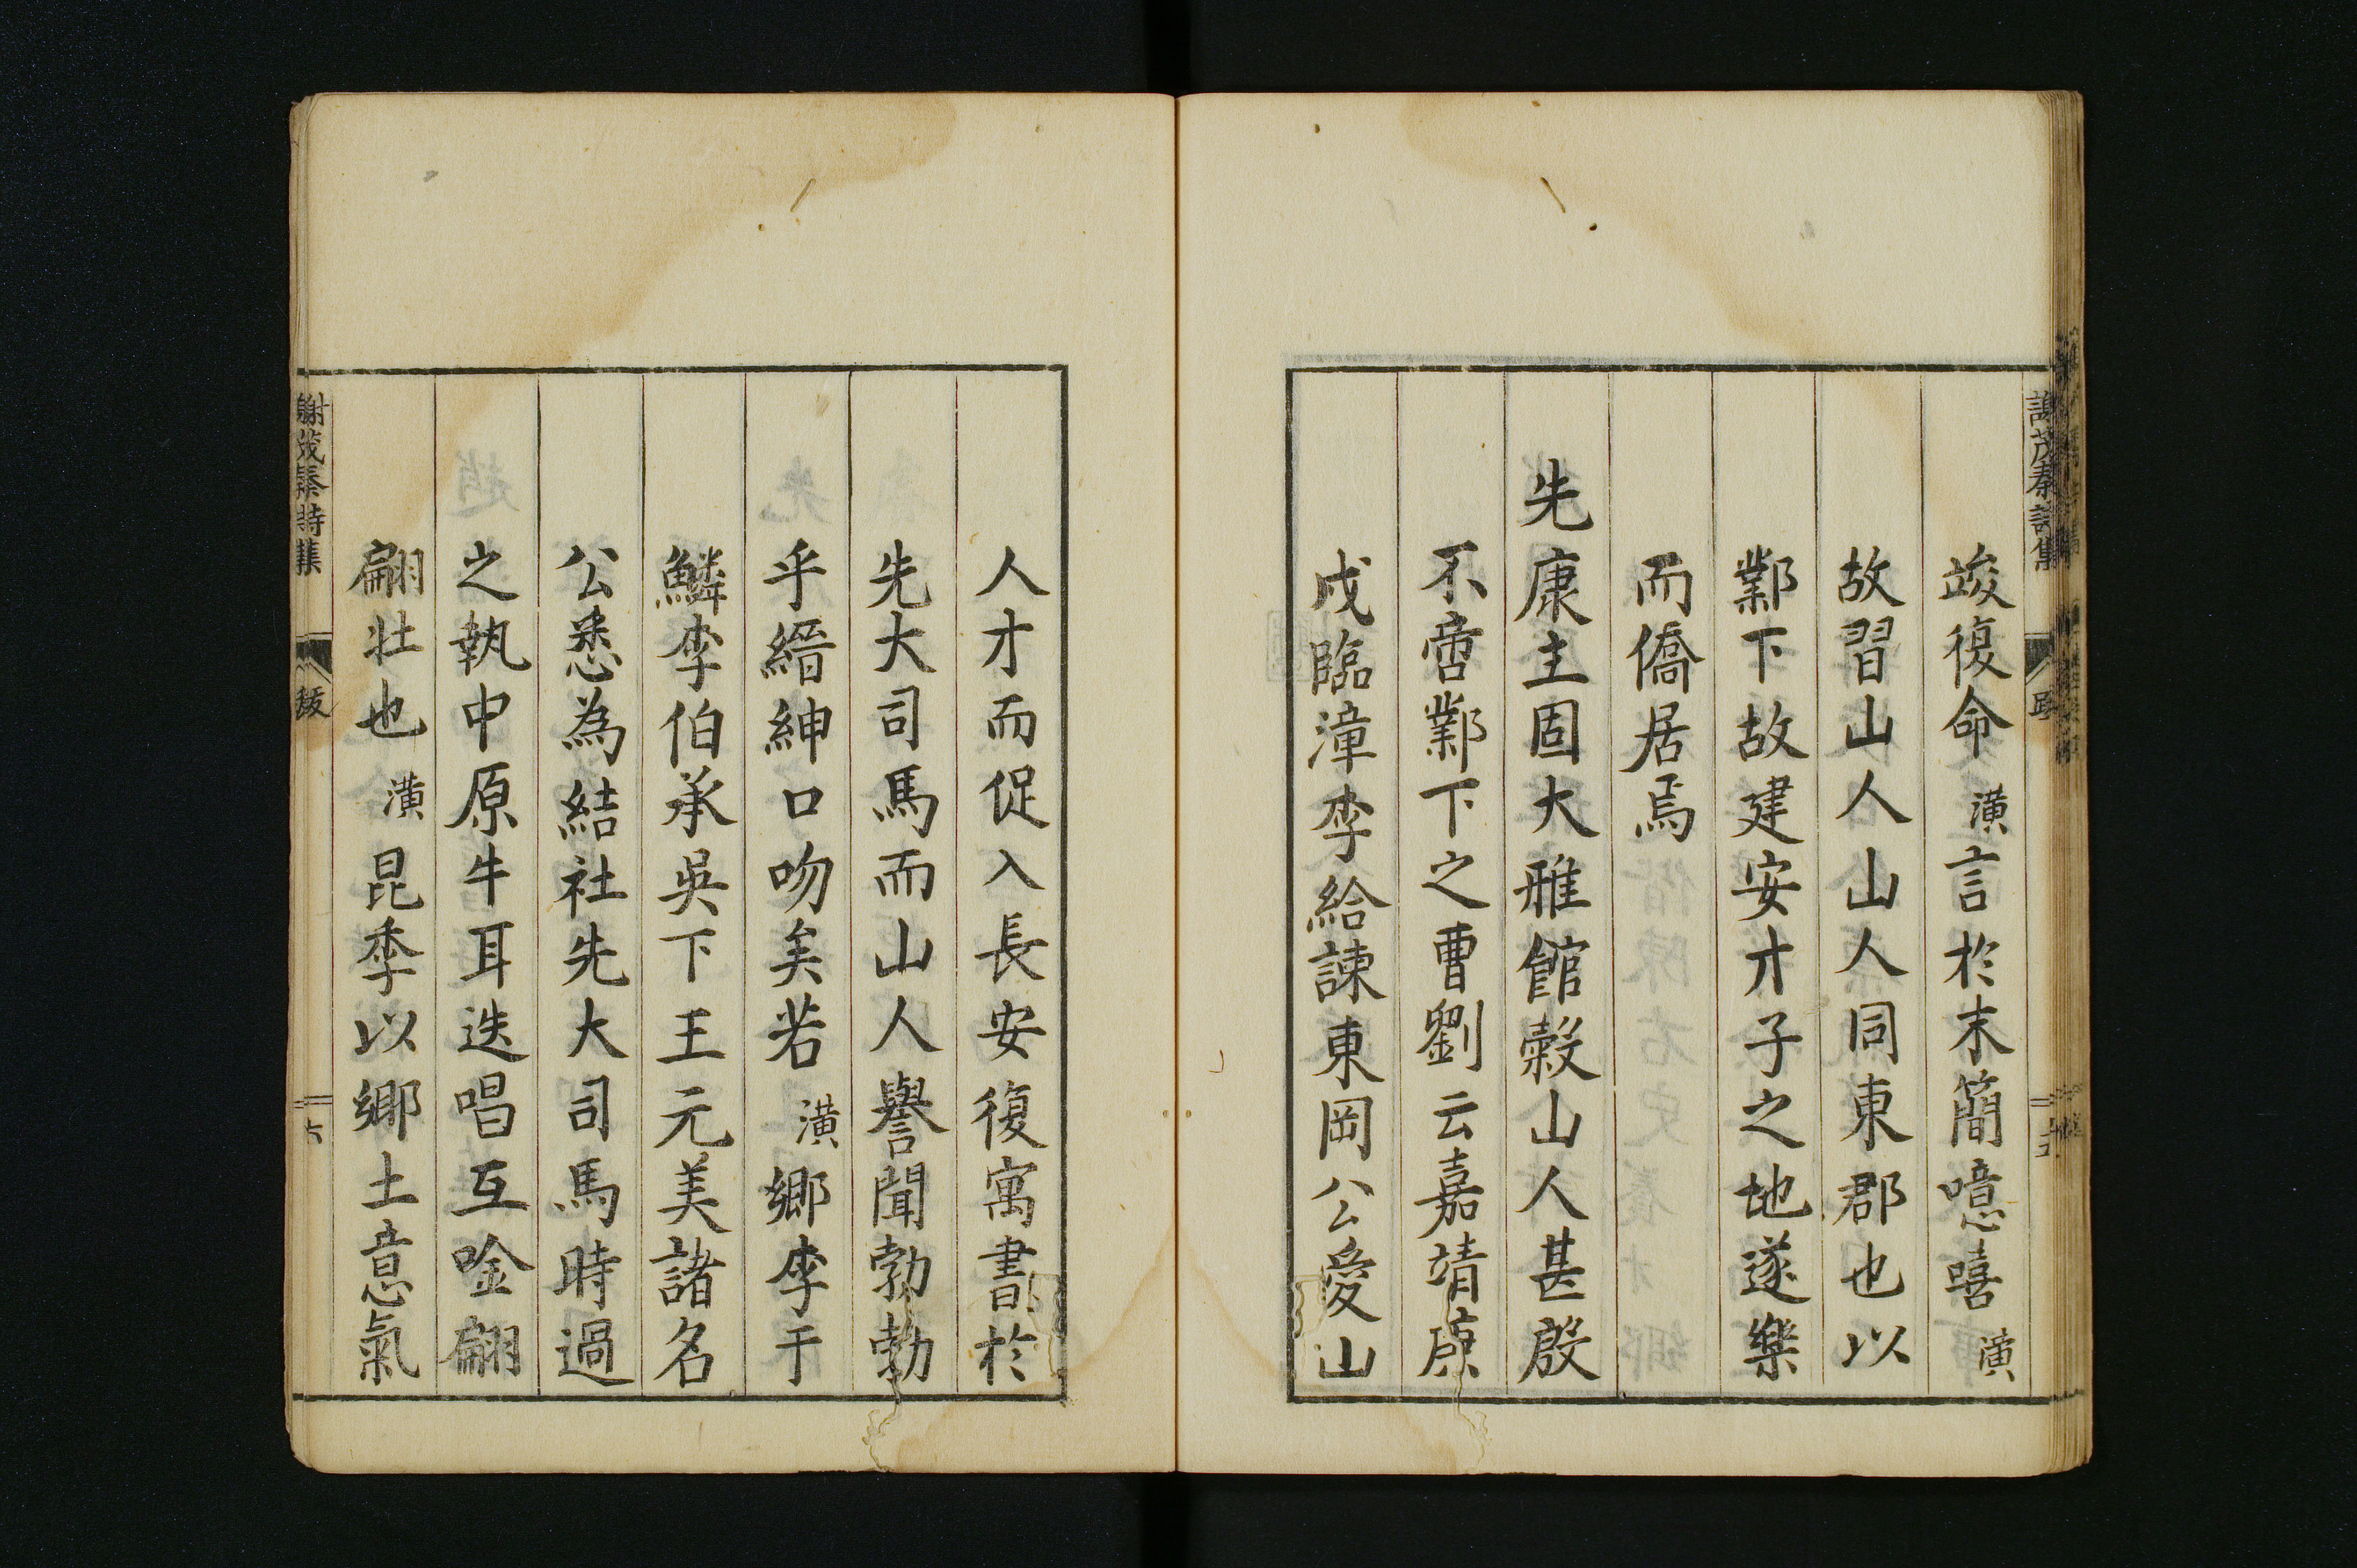 竣復命潢言於末簡噫嘻潢
故習山人山人同東郡也以
鄴下故建安才子之地遂樂
而僑居焉
先康主固大雅館穀山人甚殷
不啻鄴下之曹劉云嘉靖庚
戌臨漳李給諫東岡公愛山
人才而促入長安復寓書於
先大司馬而山人譽聞勃勃
乎縉紳口吻矣若潢鄉李于
鱗李伯承吳下王元美諸名
公悉為結社先大司馬時過
之執中原牛耳迭唱互唫翩
翩壯也潢昆季以鄉土意氣
謝茂秦詩集
跋
六